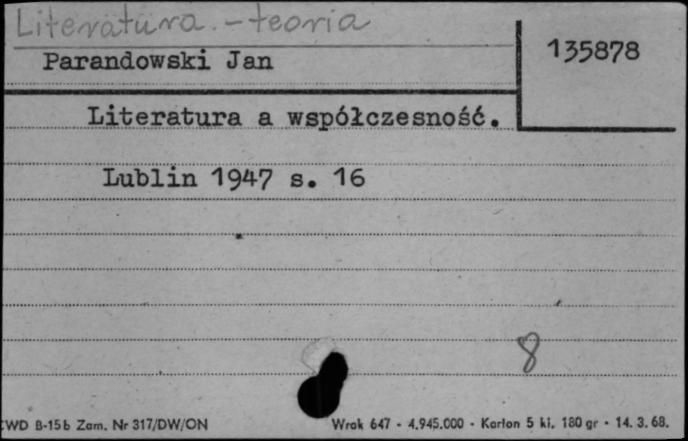 Literatura. - teoria
135878
Parandowski Jan
Literatura a współczesność.
Lublin 1947 s. 16
8
CWD B-15b Zam. Nr 317/DW/ON
Wrak 647 - 4.945.000 - Karton 5 kl. 180 gr - 14. 3. 68.